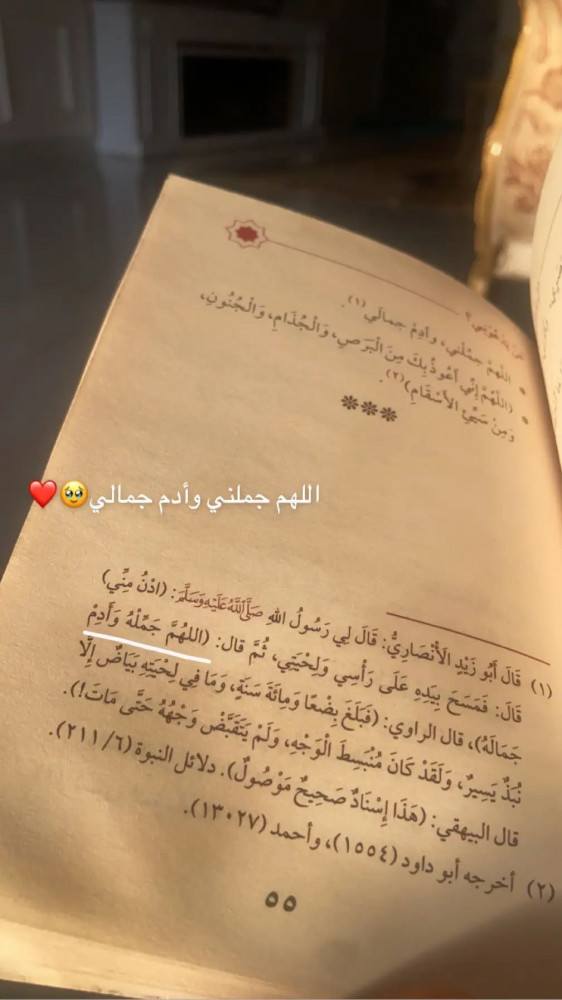 اللهم جمِّلني، وأدِمْ جمالي (١).
(اللَّهُمَّ إِنِّي أَعُوذُ بِكَ مِنَ الْبَرَصِ، وَالْجُذَامِ، وَالْجُنُونِ،
وَمِنْ سَيِّئِ الأَسْقَامِ) (٢).
***
اللهم جملني وأدم جمالي🥹❤️
(١) قَالَ أَبُو زَيْدٍ الْأَنْصَارِيُّ: قَالَ لِي رَسُولُ اللهِ صَلَّى اللَّهُ عَلَيْهِ وَسَلَّمَ: (ادْنُ مِنِّي)
قَالَ: فَمَسَحَ بِيَدِهِ عَلَى رَأْسِي وَلِحْيَتِي، ثُمَّ قال: (اللهُمَّ جَمِّلْهُ وَأَدِمْ
جَمَالَهُ)، قال الراوي: (فَبَلَغَ بِضْعًا وَمِائَةَ سَنَةٍ، وَمَا فِي لِحْيَتِهِ بَيَاضٌ إِلَّا
نُبَذٌ يَسِيرٌ، وَلَقَدْ كَانَ مُنْبَسِطَ الْوَجْهِ، وَلَمْ يَتَقَبَّضْ وَجْهُهُ حَتَّى مَاتَ!).
قال البيهقي: (هَذَا إِسْنَادٌ صَحِيحٌ مَوْصُولٌ). دلائل النبوة (٢١١/٦).
(٢) أخرجه أبو داود (١٥٥٤)، وأحمد (١٣٠٢٧).
٥٥